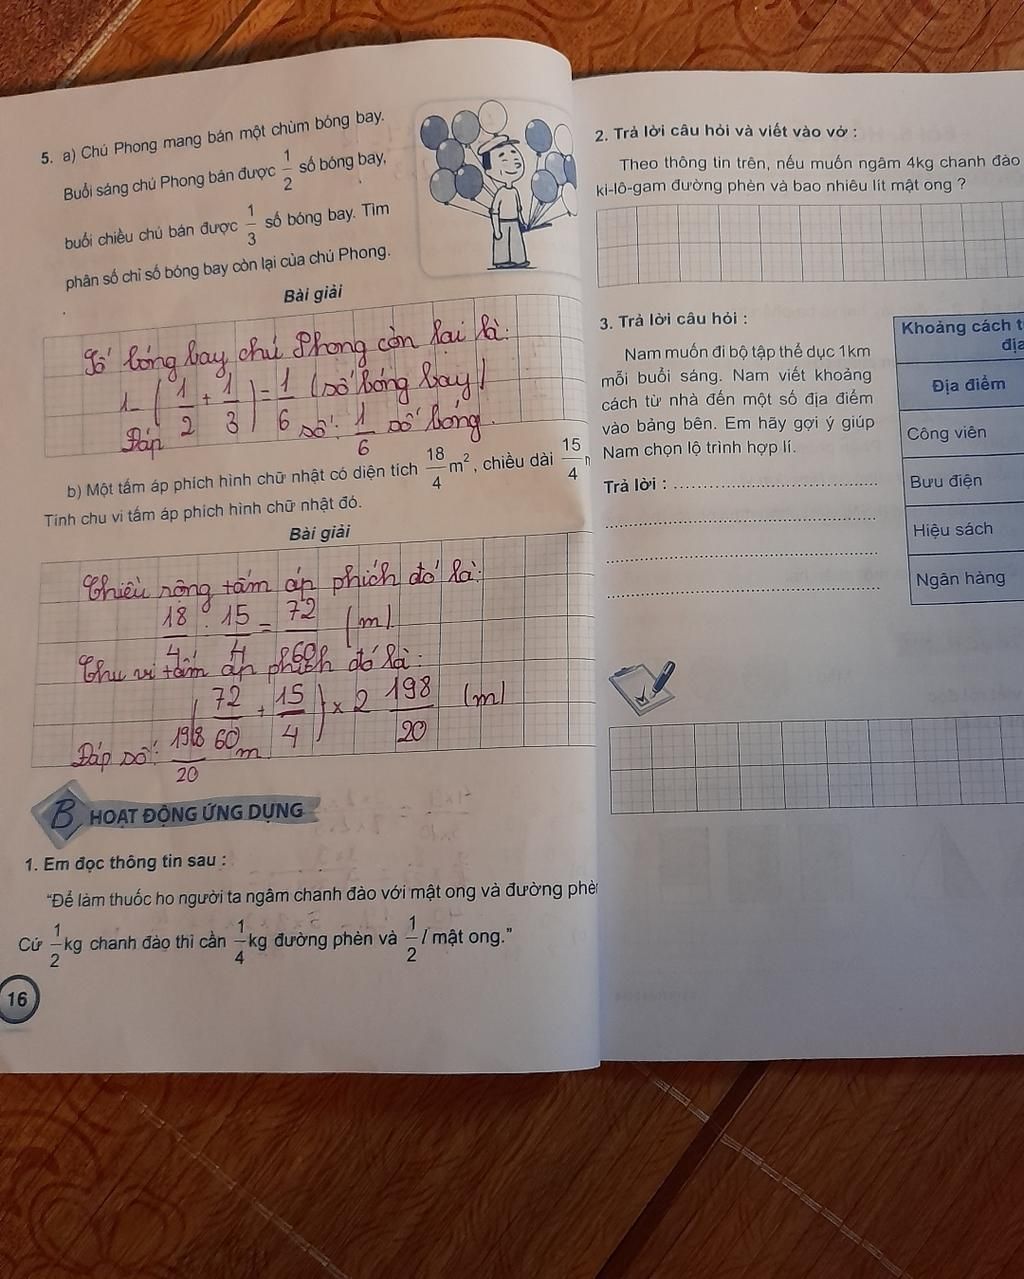 5. a) Chú Phong mang bán một chùm bóng bay.
Buổi sáng chú Phong bán được 1/2 số bóng bay,
buổi chiều chú bán được 1/3 số bóng bay. Tìm
phân số chỉ số bóng bay còn lại của chú Phong.
Bài giải
Số bóng bay chú Phong còn lại là:
1 - (1/2 + 1/3) = 1/6 (số bóng bay)
Đáp số: 1/6 số bóng.
b) Một tấm áp phích hình chữ nhật có diện tích 18/4 m², chiều dài 15/4
Tính chu vi tấm áp phích hình chữ nhật đó.
Bài giải
Chiều rộng tấm áp phích đó là:
18/4 : 15/4 = 72/60 (m)
Chu vi tấm áp phích đó là:
(72/60 + 15/4) x 2 198/20 (m)
Đáp số: 198/20 m
B HOẠT ĐỘNG ỨNG DỤNG
1. Em đọc thông tin sau :
"Để làm thuốc ho người ta ngâm chanh đào với mật ong và đường phè
Cứ 1/2 kg chanh đào thì cần 1/4 kg đường phèn và 1/2 l mật ong."
16
2. Trả lời câu hỏi và viết vào vở :
Theo thông tin trên, nếu muốn ngâm 4kg chanh đào
ki-lô-gam đường phèn và bao nhiêu lít mật ong ?
3. Trả lời câu hỏi :
Nam muốn đi bộ tập thể dục 1km
mỗi buổi sáng. Nam viết khoảng
cách từ nhà đến một số địa điểm
vào bảng bên. Em hãy gợi ý giúp
Nam chọn lộ trình hợp lí.
Trả lời :
Khoảng cách t
địa
Địa điểm
Công viên
Bưu điện
Hiệu sách
Ngân hàng